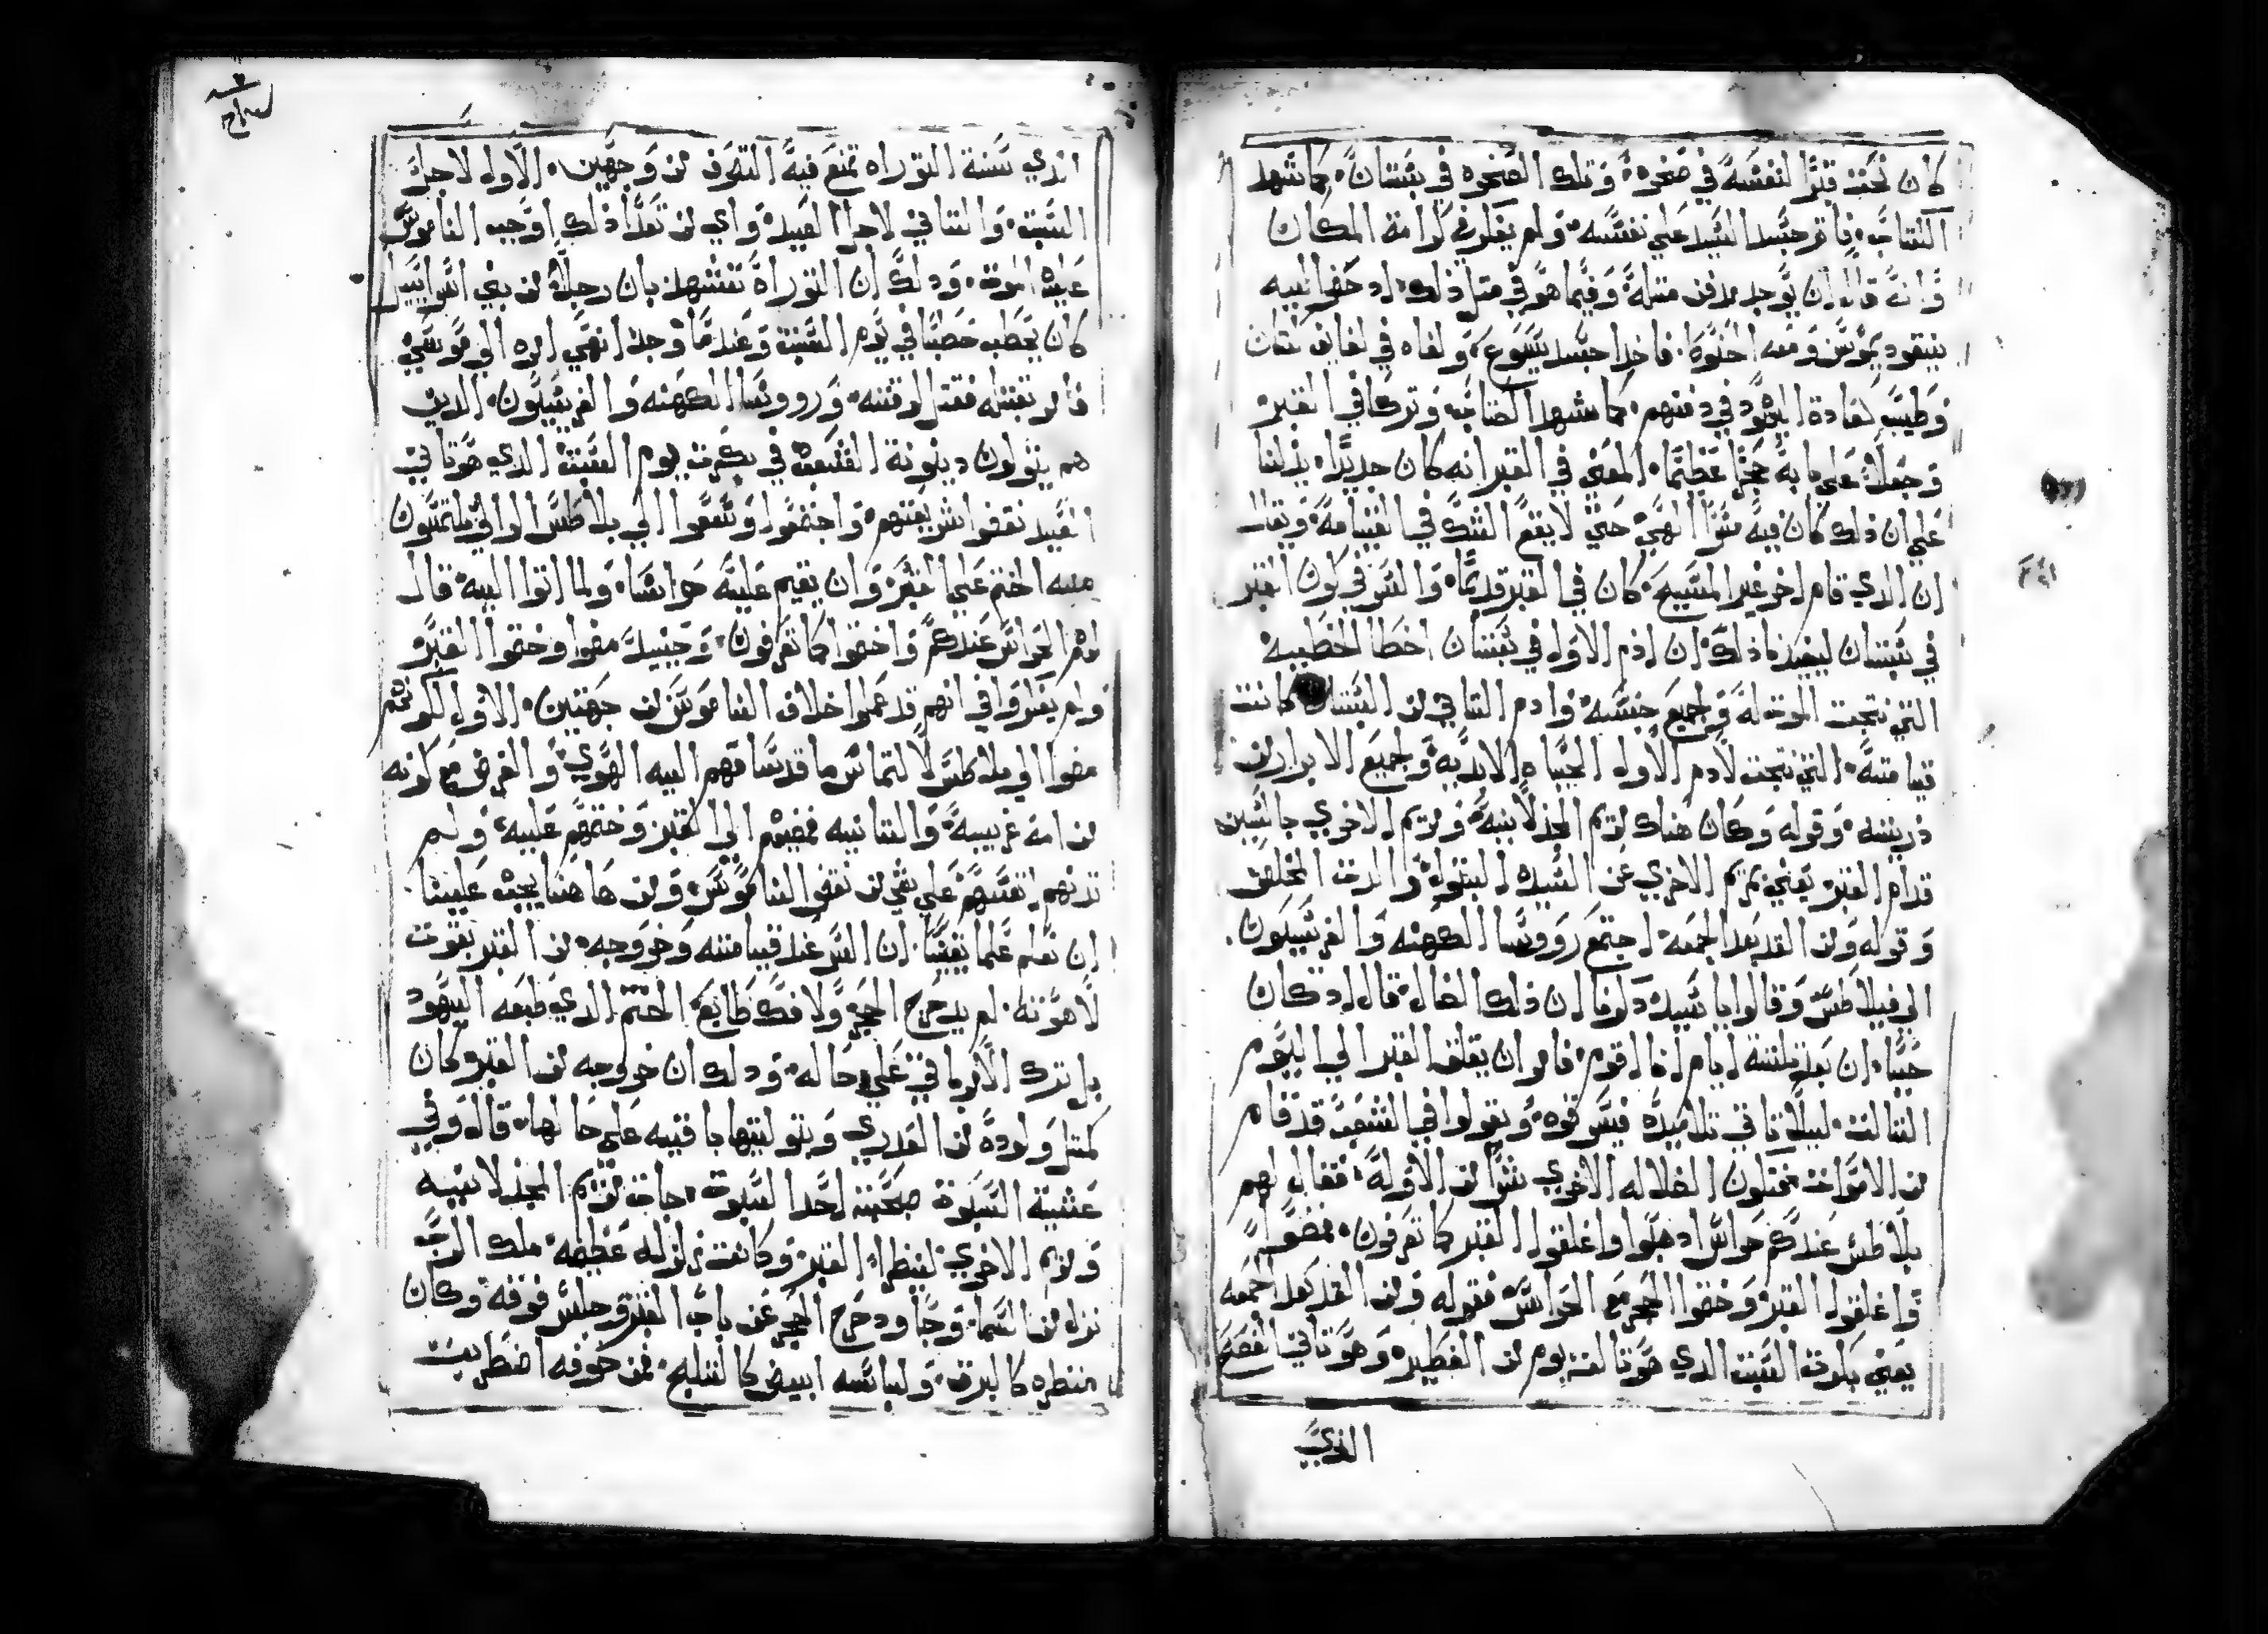 كان نحت قبرًا لنفسه في صخره. وتلك الصخره في بستان. كما شهد
الكتاب. فاثر جسد السيد علي نفسه. ولم يفكر في كرامة المكان
وانه قال ان يوجد مدفن مثله. وفيما هو في مثل ذلك. اد حضر اليه
نيقوديموس ومعه احنوط. فاخدا جسد يسوع. ولفاه في لفايف كتان
وطيب كعادة اليهود في دفنهم. كما شهد الكتاب. وتركا في القبر
وجعلا علي بابه حجرًا عظيمًا. المعني في القبر انه كان جديدًا. يدلنا
علي ان ذلك كان فيه سرًا الهي حتي لا يقع الشك في القيامه. ويقال
ان الدي قام اخر غير المسيح. كان في القبر قديمًا. والسر في كون القبر
في بستان ليفيدنا ذلك. ان ادم الاول في بستان اخطا الخطييه
التي نتجت الموت له وجميع جنسه. وادم التاني من البستان كانت
قيامته. التي نتجت لادم الاول الحياه الابديه وجميع الابرار من
دريته. وقوله وكان هناك مريم المجدلانيه. ومريم الاخري جالسين
قدام القبر يعني بمريم الاخري عن السيده البتول والدت المخلص
وقوله ومن الغد بعد الجمعه. اجتمع رووسا الكهنه والفريسيون.
الي فيلاطس وقالوا يا سيد دكرنا ان ذلك الضال. قال اد كان
حيًا. ان بعد تلتة ايام انا اقوم. فامر ان يغلق القبر الي اليوم
التالت. ليلا تاتي تلاميده فيسرقوه. ويقولوا في الشعب قد قام
من الاموات فتكون الضلاله الاخري شرًا من الاوله. فقال لهم
بيلاطس عندكم حراس ادهبوا واغلقوا القبر كما تعرفون. فمضوا
واغلقوا القبر وختموا الحجر مع الحراس. فقوله ومن الغد بعد الجمعه
يعني بكرت السبت الدي هو تالت يوم من الفطير. وهو تاني الفصح
الذي
الذي سنة التوراه تمنع فيه التصرف من وجهين. الاول لاجل
السبت. والتاني لاجل العيد. واي من تعدا ذلك اوجب الناموس
عليه الموت. ودلك ان التوراة تشهد بان رجلًا من بني اسراييل
كان يحطب حطبًا في يوم السبت وعندما وجد انهي امره الي موسي
فامر بقتله فقتل لوقته. ورووسا الكهنه والفريسيون. الدين
هم يتولون دينونة الشعب في بكرت يوم السبت الدي هو تاني
العيد نقضوا شريعتهم. واجتمعوا وسعوا الي بيلاطس الوالي ملتمسون
منه الختم علي القبر. وان يقيم عليه حراسًا. ولما اتوا اليه. قال
لهم الحراس عندكم واختموا كما تعرفون. وحينيد مضوا وختموا القبر
ولم يفكروا في انهم قد عملوا خلاف الناموس من جهتين. الاول لكونهم
مضوا الي بيلاطس لالتماس ما قد ساقهم اليه الهوي والغرض مع كونه
من امة غريبة. والتانيه فمضيهم الي القبر وختمهم عليه. ولم
تدنهم انفسهم علي شي من نقض الناموس. ومن ها هنا يجب علينا
ان نعلم علمًا يقينًا. ان السر عند قيامته وخروجه من القبر بقوت
لاهوته. لم يدحرج الحجر ولا فك طابع الختم الدي طبعه اليهود
بل ترك الامر باقي علي حاله. ودلك ان خروجه من القبر كان
كمتل ولوده من العدري وبتوليتها باقيه علي حالها. قال وفي
عشية السبوت صبحيته احدا السبوت. جات مريم المجدلانيه
ومريم الاخري لينظرا القبر. وكانت زلزله عظيمه. ملك الرب
نزل من السما. وجا ودحرج الحجر عن باب القبر وجلس فوقه. وكان
منظره كالبرق. ولباسه ابيض كالتلج. فمن خوفه اضطربت